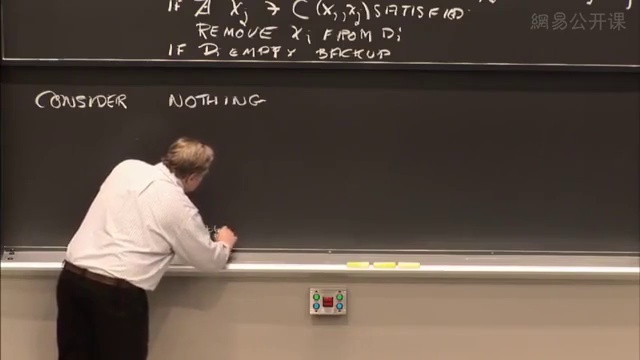 網易公开课
IF ∄ Xj ∋ C(Xi,Xj) SATISFIED
REMOVE Xi FROM Di
IF Di EMPTY BACKUP
CONSIDER NOTHING